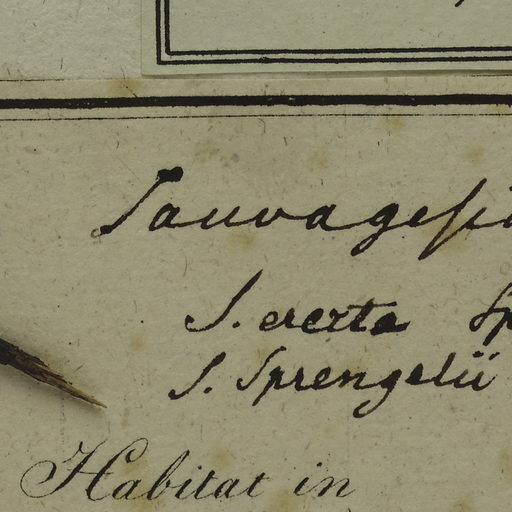 Sauvagesia
S. erecta Sp
S. Sprengelii
Habitat in